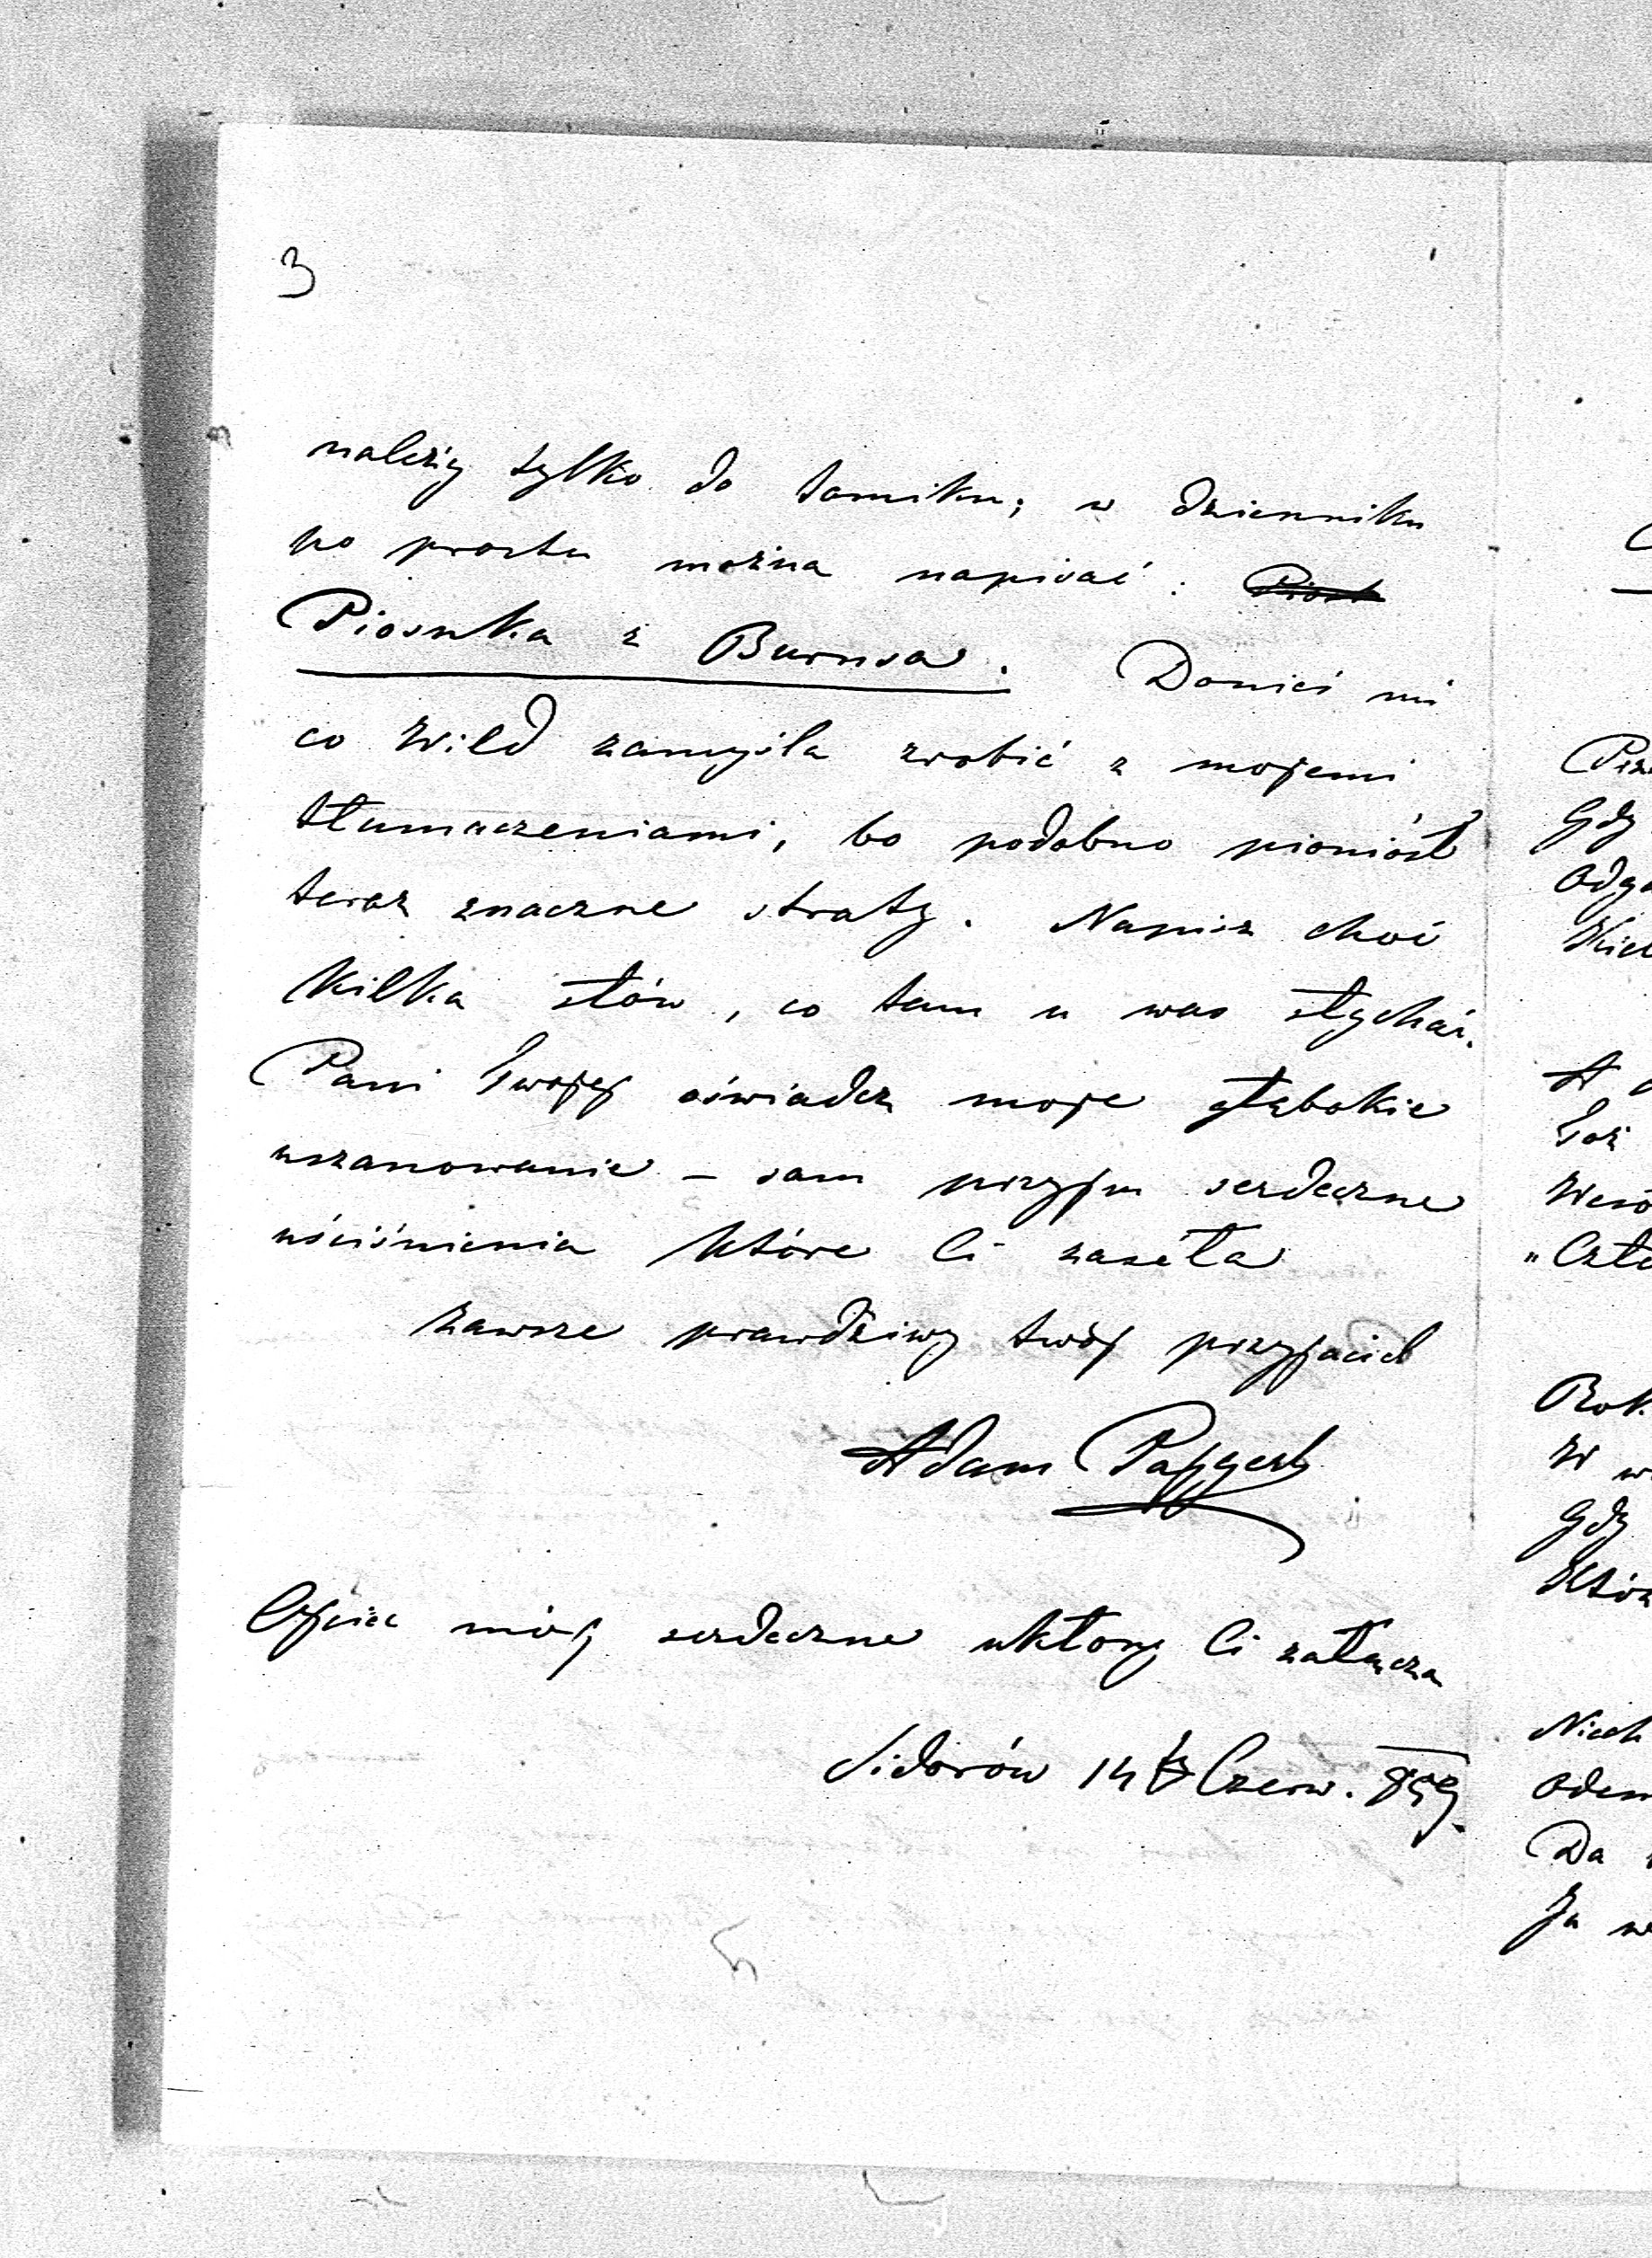 3
należy tylko do tomiku; w dzienniku
po prostu można napisać: Piosn
Piosnka z Burnsa. Donieś mi
co Wild zamyśla zrobić z mojemi
tłumaczeniami, bo podobno pioniósł
teraz znaczne straty. Napisz choć
kilka słów, co tam u was słychać.
Pani Twojej oświadcz moje głębokie
uszanowanie – sam przyjm serdeczne
uściśnienia które Ci zaseła
zawsze prawdziwy twój przyjaciel
Adam Pajgert
Ojciec mój serdeczne ukłony Ci załącza
Sidorów 14 Czerw. 859.
Gdy
A
Toż
"Czło
W
Gdy
Niech
Da
Ja